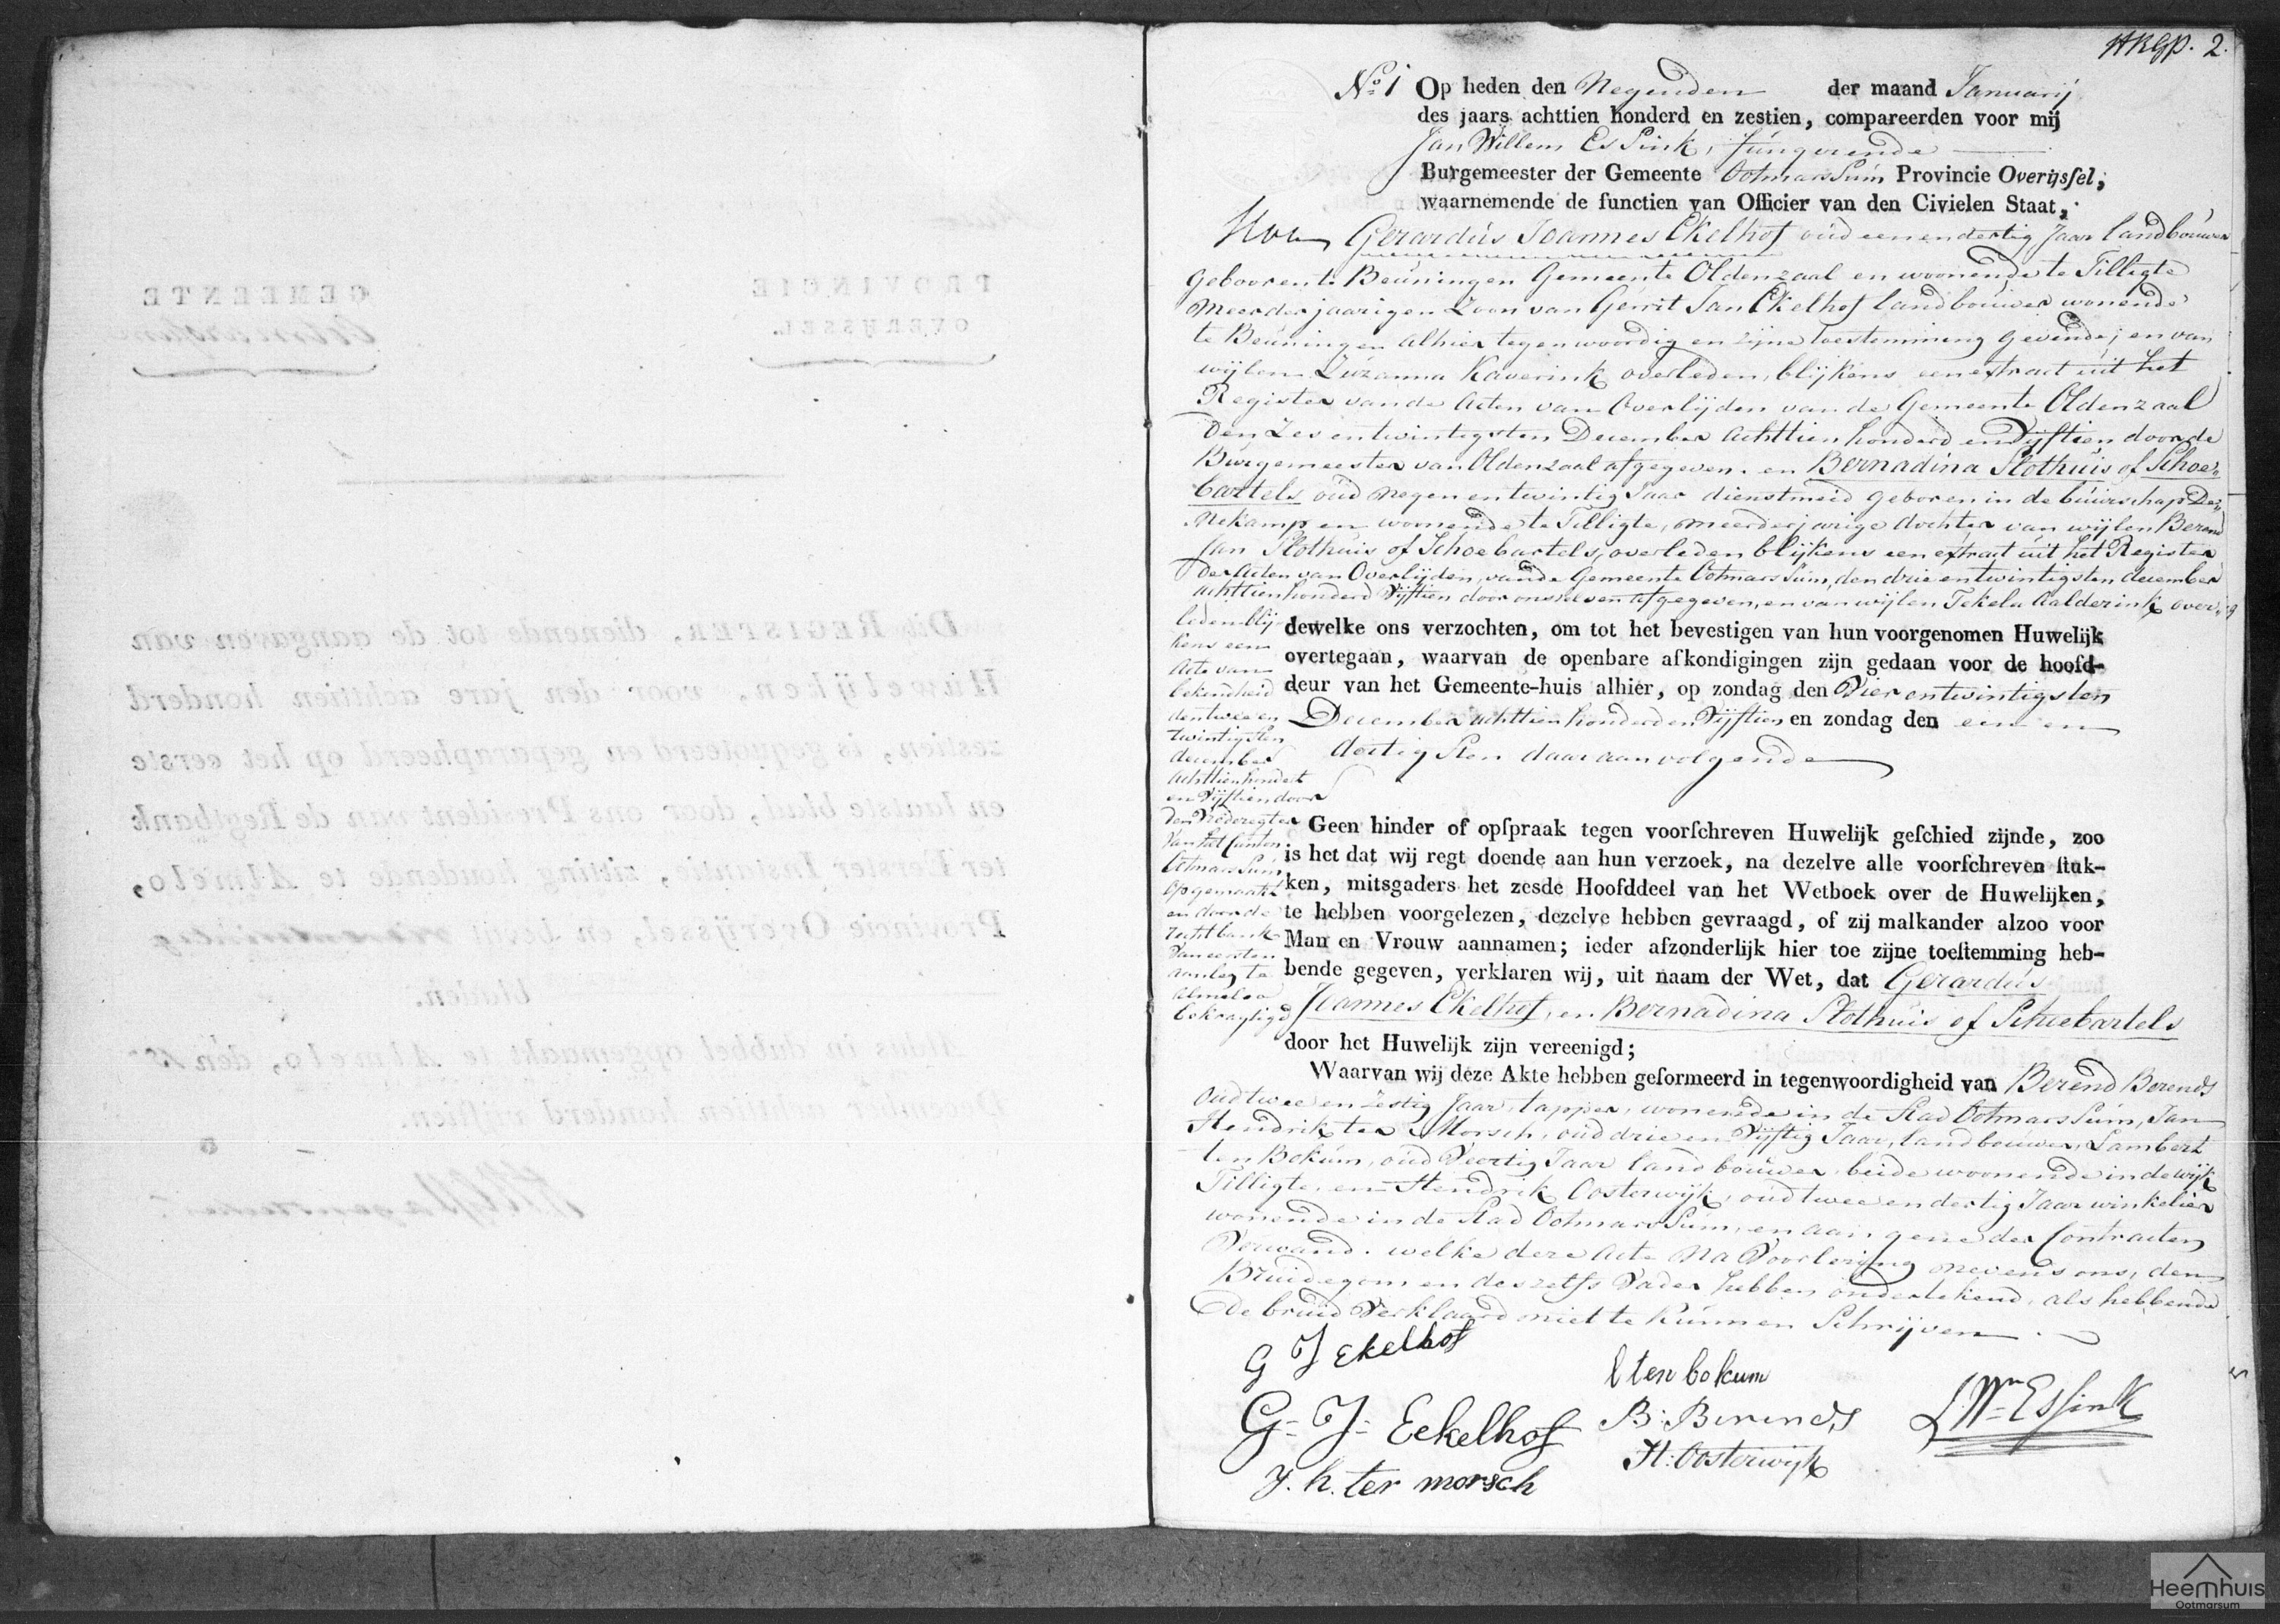 2.
No 1 Op heden den Negenden der maand Januarij
des jaars achttien honderd en zestien, compareerden voor mij
Jan Willem Essink, fúngerende
Burgemeester der Gemeente Ootmarssúm Provincie Overijssel,
waarnemende de functien van Officier van den Civielen Staat,
Gerardús Joannes Ekelhof oúd een en dertig Jaar Landboúwer
Gebooren te Beúningen Gemeente Oldenzaal en woonende te Tilligte
meerderjaarigen Zoon van Gerrit Jan Ekelhof landboúwer wonende
te Beúningen alhier tegenwoordig en zijne toestemming gevende; en van
wijlen Zúzanna Kaverink overleden, blijkens een extract uit het
Register van de Acten van Overlijden van de Gemeente Oldenzaal
den Zes en twintigsten December Achttien honderd en Vijftien door de
Búrgemeester van Oldenzaal afgegeven. en Bernadina Slothúis of Schoe-
bartels oúd negen en twintig Jaar dienstmeid geboren in de búúrschap De-
nekamp en woonende te Tilligte, meerderjarige dochter van wijlen Berend
Jan Slothúis of Schoebartels, overleden blijkens een extract úit het Register
der Acten van Overlijden, van de Gemeente Ootmarssúm, den drie en twintigsten december
achttienhonderd Vijftien door onszelven afgegeven, en van wijlen Tekela Aalderink over-
leden blij-
kens een
Acte van
bekendheid
den twee en
twintigsten
december
achttienhondert
en Vijftien door
den Vrederegter
van het Canton
Ootmarssúm
opgemaakt
en door de
rechtbank
van eersten
aanleg te
Almeloo
bekragtigd
dewelke ons verzochten, om tot het bevestigen van hun voorgenomen Huwelijk
overtegaan, waarvan de openbare afkondigingen zijn gedaan voor de hoofd-
deur van het Gemeente-huis alhier, op zondag den Vier en twintigsten
December achttien honderd en Vijftien en zondag den een en
dertigsten daar aan volgende
Geen hinder of opspraak tegen voorschreven Huwelijk geschied zijnde, zoo
is het dat wij regt doende aan hun verzoek, na dezelve alle voorschreven stuk-
ken, mitsgaders het zesde Hoofddeel van het Wetboek over de Huwelijken,
te hebben voorgelezen, dezelve hebben gevraagd, of zij malkander alzoo voor
Man en Vrouw aannamen; ieder afzonderlijk hier toe zijne toestemming heb-
bende gegeven, verklaren wij, uit naam der Wet, dat Gerardús
Joannes Ekelhof, en Bernadina Slothúis of Schoebartels
door het Huwelijk zijn vereenigd;
Waarvan wij deze Akte hebben geformeerd in tegenwoordigheid van Berend Berends
Oud twee en Zestig Jaar, tapper, wonende in de Stad Ootmarssúm, Jan
Hendrik ter Morsch, oúd drie en Vijftig Jaar, landbouwer, Lambert
ten Bokúm, oúd Veertig Jaar landboúwer beide woonende in de wijk
Tilligte, en Hendrik Oosterwijk, oúd twee en dertig Jaar winkelier
wonende in de Stad Ootmarssúm, en aan geene der Contracten
Verwand. welke deze Acte na Voorlezing nevens ons, den
Brúidegom en deszelfs Vader hebben ondertekend, als hebbende
de brúid Verklaard niet te Kúnnen Schrijven.
G J Ekelhof
G= J= Eekelhof
J. h. ter morsch
l ten bokum
B: Berends
H: Oosterwijk
J. Wm Essink
GEMEENTE
PROVINCIE
OVERIJSSEL.
Dit REGISTER, dienende tot de aangaven van
Huwelijken, voor den jare achttien honderd
zestien, is gequoteerd en geparapheerd op het eerste
en laatste blad, door ons President van de Regtbank
ter Eerster Instantie, zitting houdende te Almelo,
Provincie Overijssel, en bevat
bladen.
Aldus in dubbel opgemaakt te Almelo, den
December achttien honderd vijftien.
Heemhuis
Ootmarsum